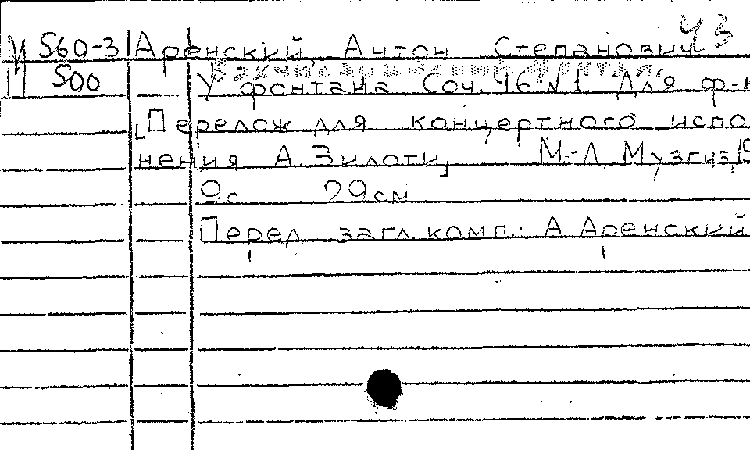 Ч3
У 560-3 Аренский, Антон Степанович
П 500 У фонтана Соч. 46 №1 Для ф-п
[Перелож для концертного испо
нения А. Зилоти] М.-Л Музгиз,
9с 29см
Перед загл. комп.: А Аренский